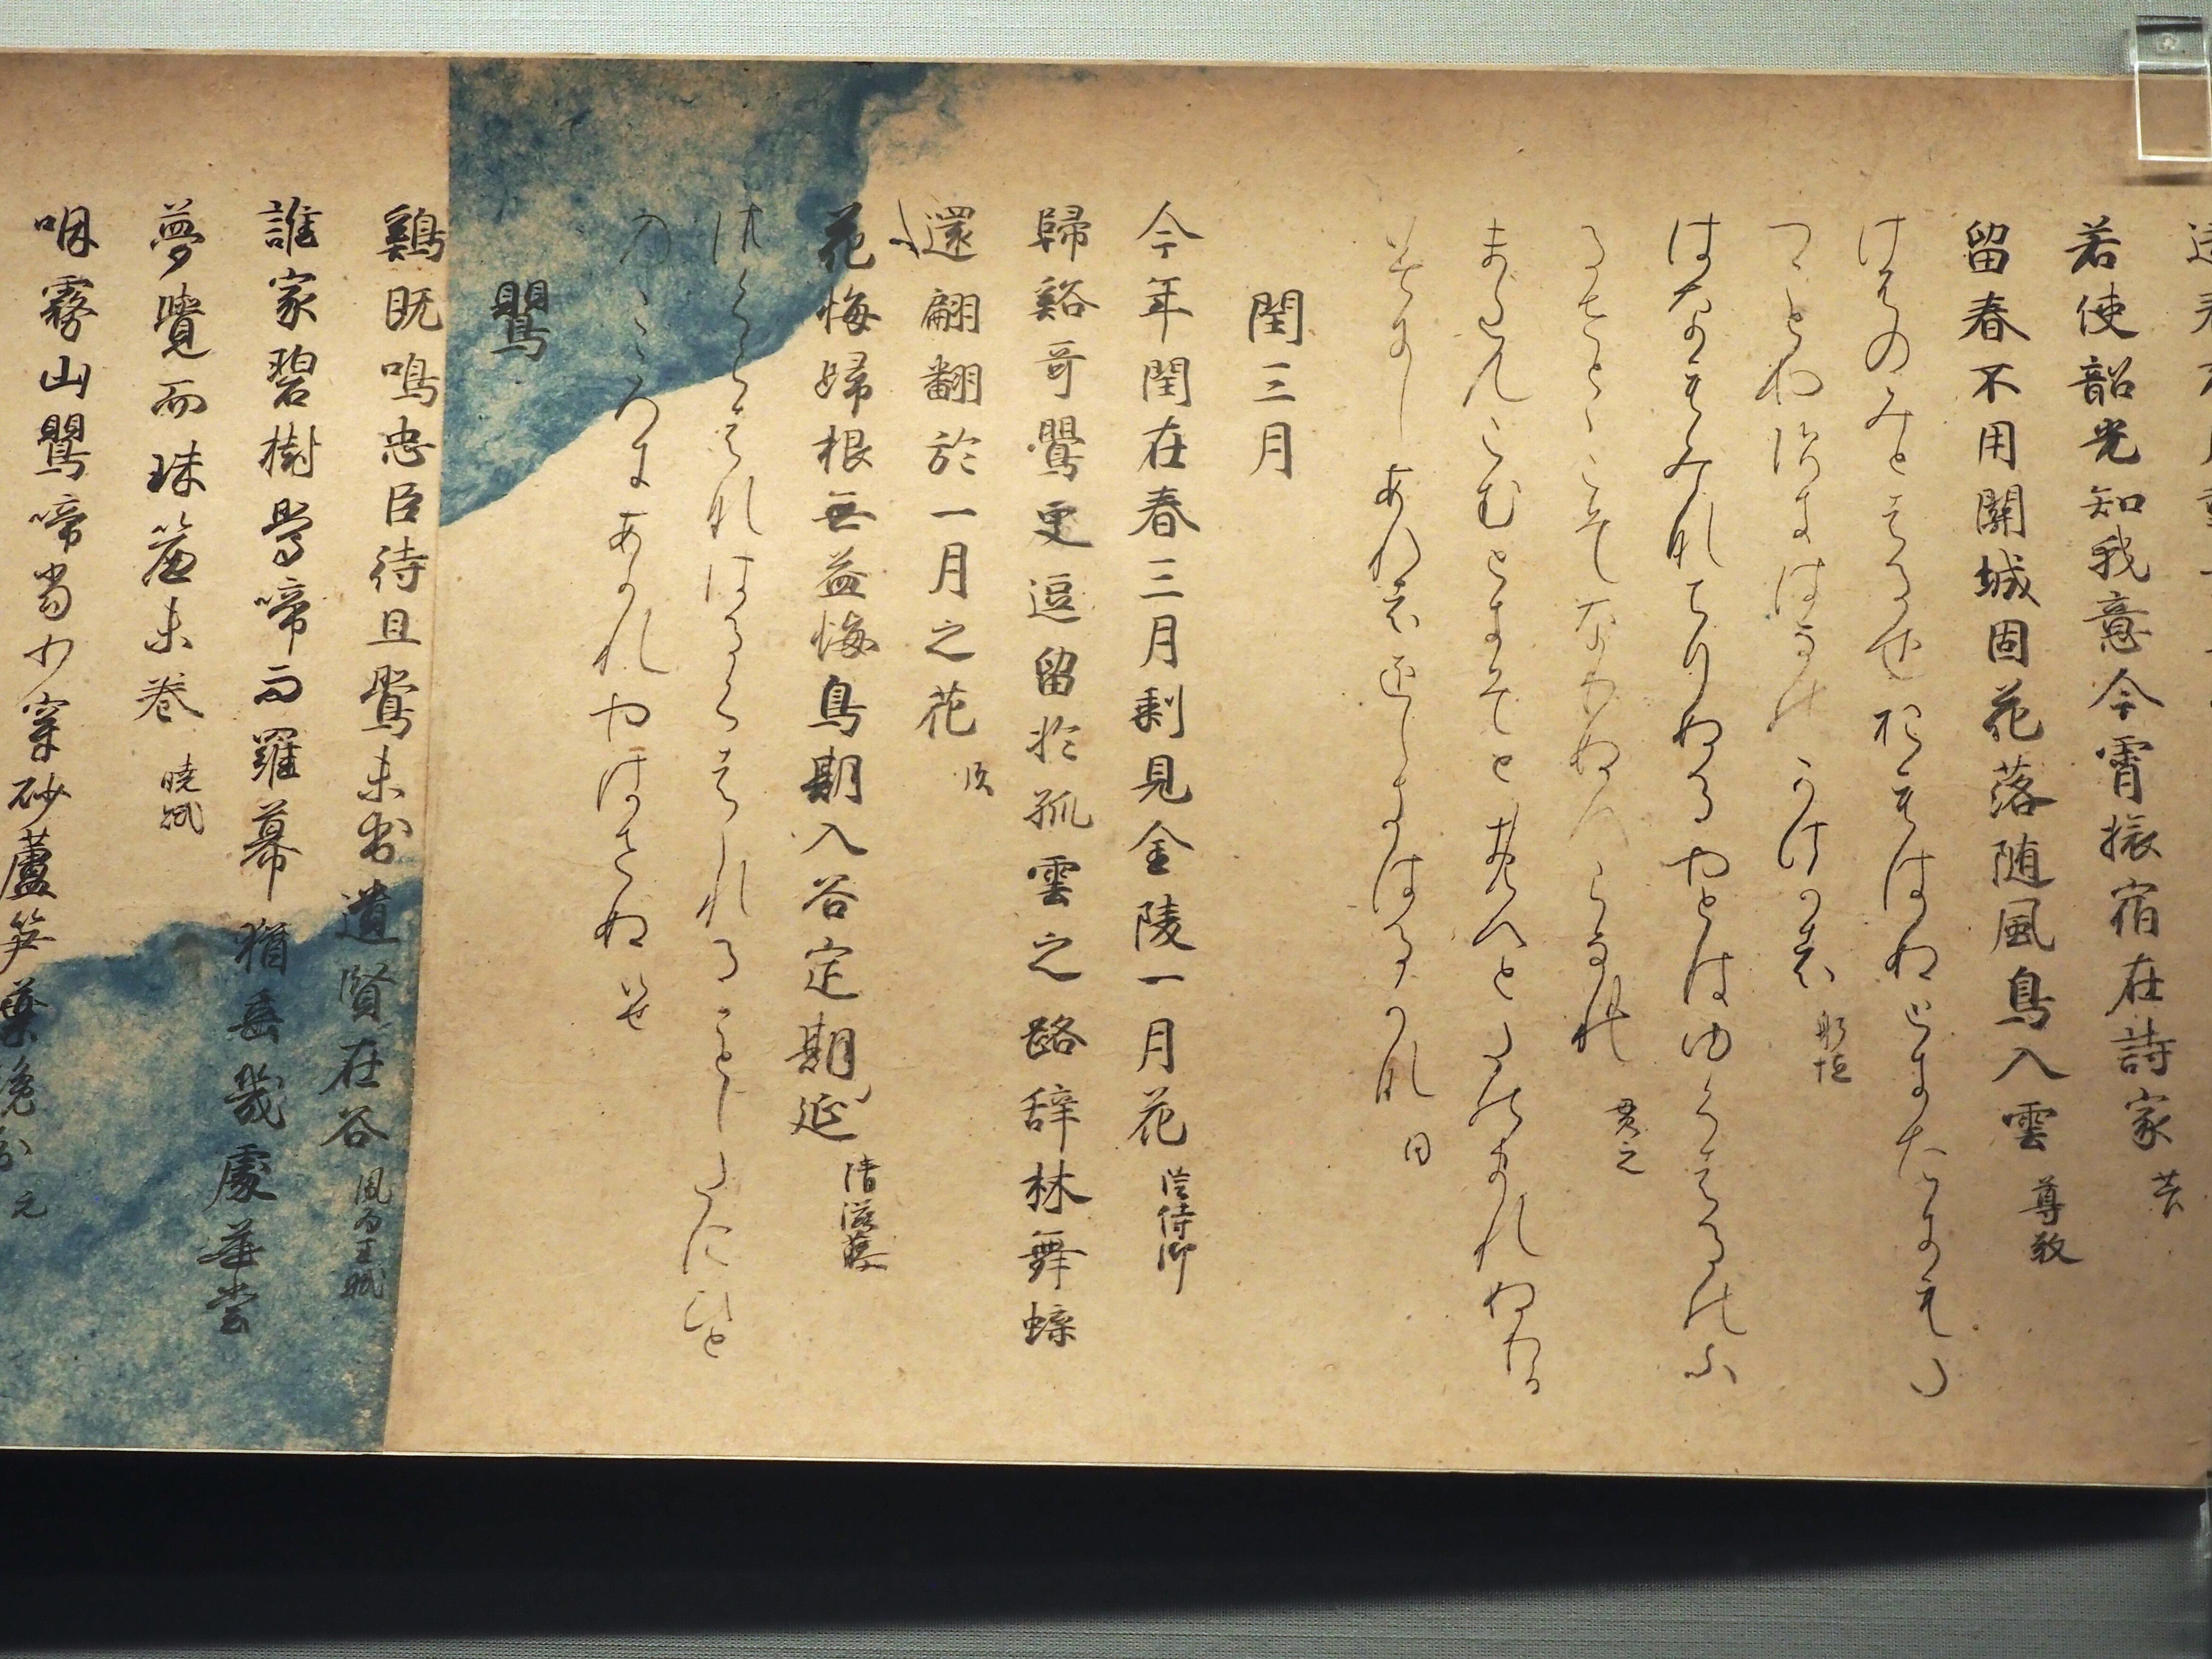 若使韶光知我意今宵振宿在詩家 菅
留春不用関城固花落随風鳥入雲 尊敬
けふのみとはるをおもはぬときたにもた
つことやすきはなのかけかは 躬恒
はなもみなちりぬるやとはゆくはるのふ
るさとゝこそなりぬへらなれ 貫之
またもこむときそとおもへとたのまれぬわか
みにしあれはをしきはるかな 同
閏三月
今年閏在春三月剰見金陵一月花 陸侍御
歸谿哥鸎更逗留於孤雲之路辞林舞蝶
還翩翻於一月之花 順
花悔歸根無益悔鳥期入谷定期延 清滋藤
鸎
鷄既鳴忠臣待旦鸎未出遺賢在谷 鳳為王賦
誰家碧樹鸎啼而羅幕猶垂幾處華堂
夢覺而珠簾未巻 曉賦
咽霧山鸎啼尚少穿砂蘆笋葉纔分 元